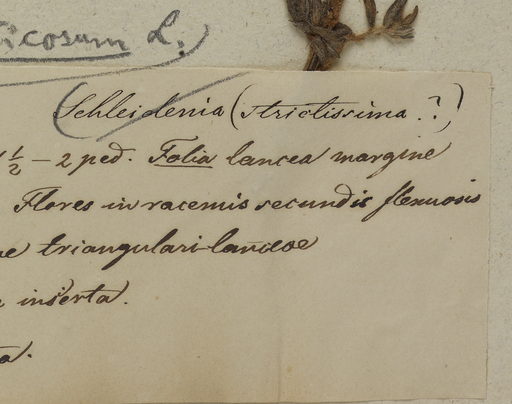 icosum L.
Schleidenia (strictissima ?)
1 1/2 – 2 ped. Folia lancea margine
Flores in racemis secundis flexuosis
ae triangulari-lanceae
inserta.
ta.